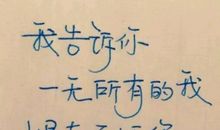 我告诉你
一无所有的我